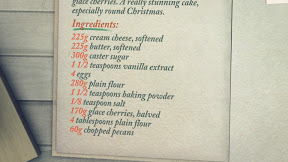 glace cherries. A really stunning cake,
especially round Christmas.
Ingredients:
225g cream cheese, softened
225g butter, softened
300g caster sugar
1 1/2 teaspoons vanilla extract
4 eggs
280g plain flour
1 1/2 teaspoons baking powder
1/8 teaspoon salt
170g glace cherries, halved
4 tablespoons plain flour
60g chopped pecans